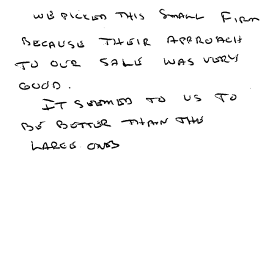 WE PICKED THIS SMALL FIRM
BECAUSE THEIR APPROACH
TO OUR SALE WAS VERY
GOOD.
IT SEEMED TO US TO
BE BETTER THAN THE
LARGE ONES